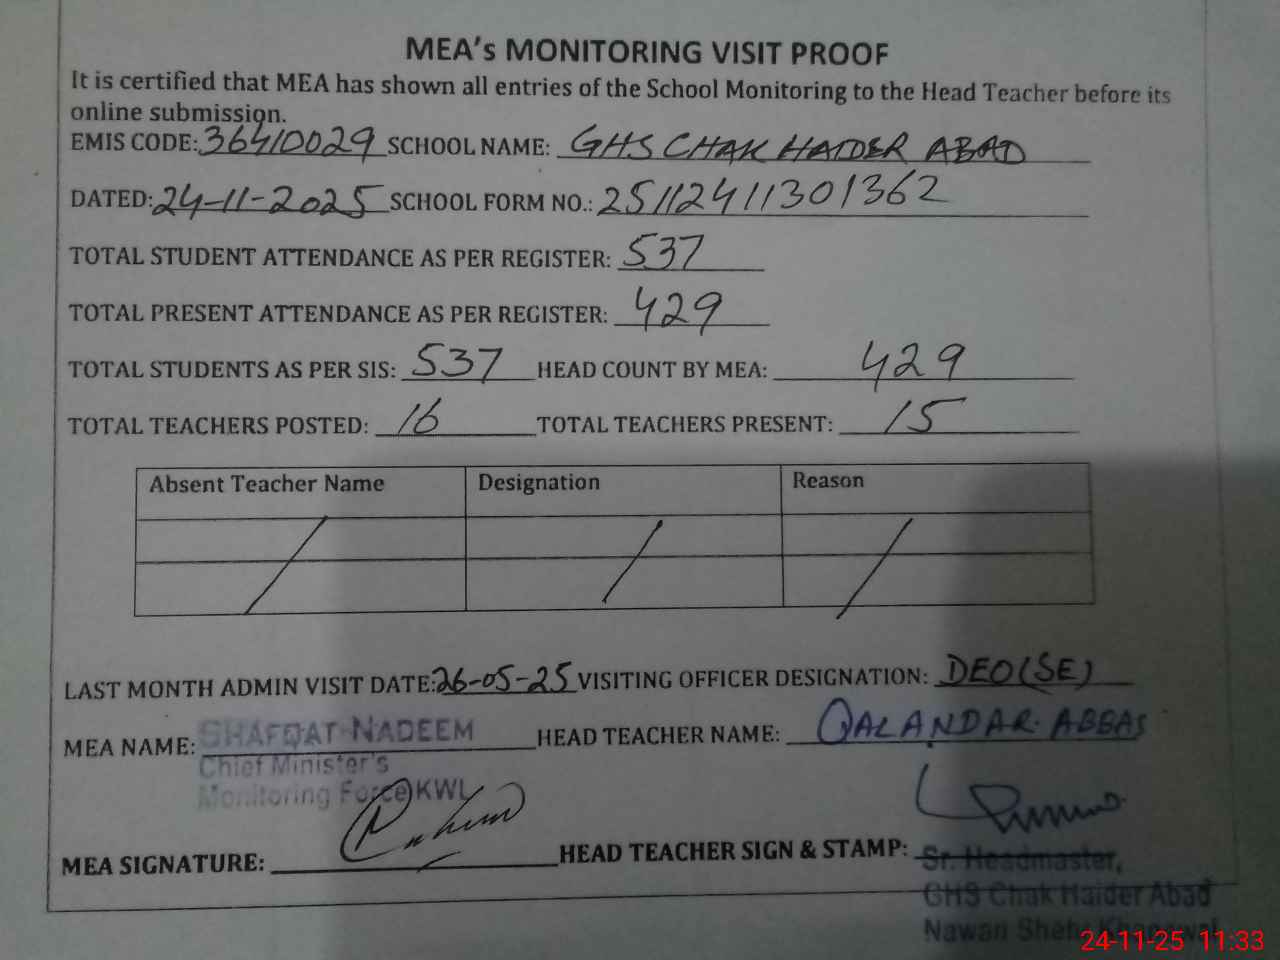 MEA's MONITORING VISIT PROOF
It is certified that MEA has shown all entries of the School Monitoring to the Head Teacher before its
online submission.
EMIS CODE: 36410029 SCHOOL NAME: GHS CHAK HAIDER ABAD
DATED: 24-11-2025 SCHOOL FORM NO.: 25112411301362
TOTAL STUDENT ATTENDANCE AS PER REGISTER: 537
TOTAL PRESENT ATTENDANCE AS PER REGISTER: 429
TOTAL STUDENTS AS PER SIS: 537 HEAD COUNT BY MEA: 429
TOTAL TEACHERS POSTED: 16 TOTAL TEACHERS PRESENT: 15
Absent Teacher Name Designation Reason
LAST MONTH ADMIN VISIT DATE: 26-05-25 VISITING OFFICER DESIGNATION: DEO(SE)
MEA NAME: SHAFQAT NADEEM HEAD TEACHER NAME: QALANDAR ABBAS
Chief Minister's
Monitoring Force KWL
MEA SIGNATURE: HEAD TEACHER SIGN & STAMP:
Sr. Headmaster,
GHS Chak Haider Abad
Nawan Shehr Khanewal
24-11-25 11:33